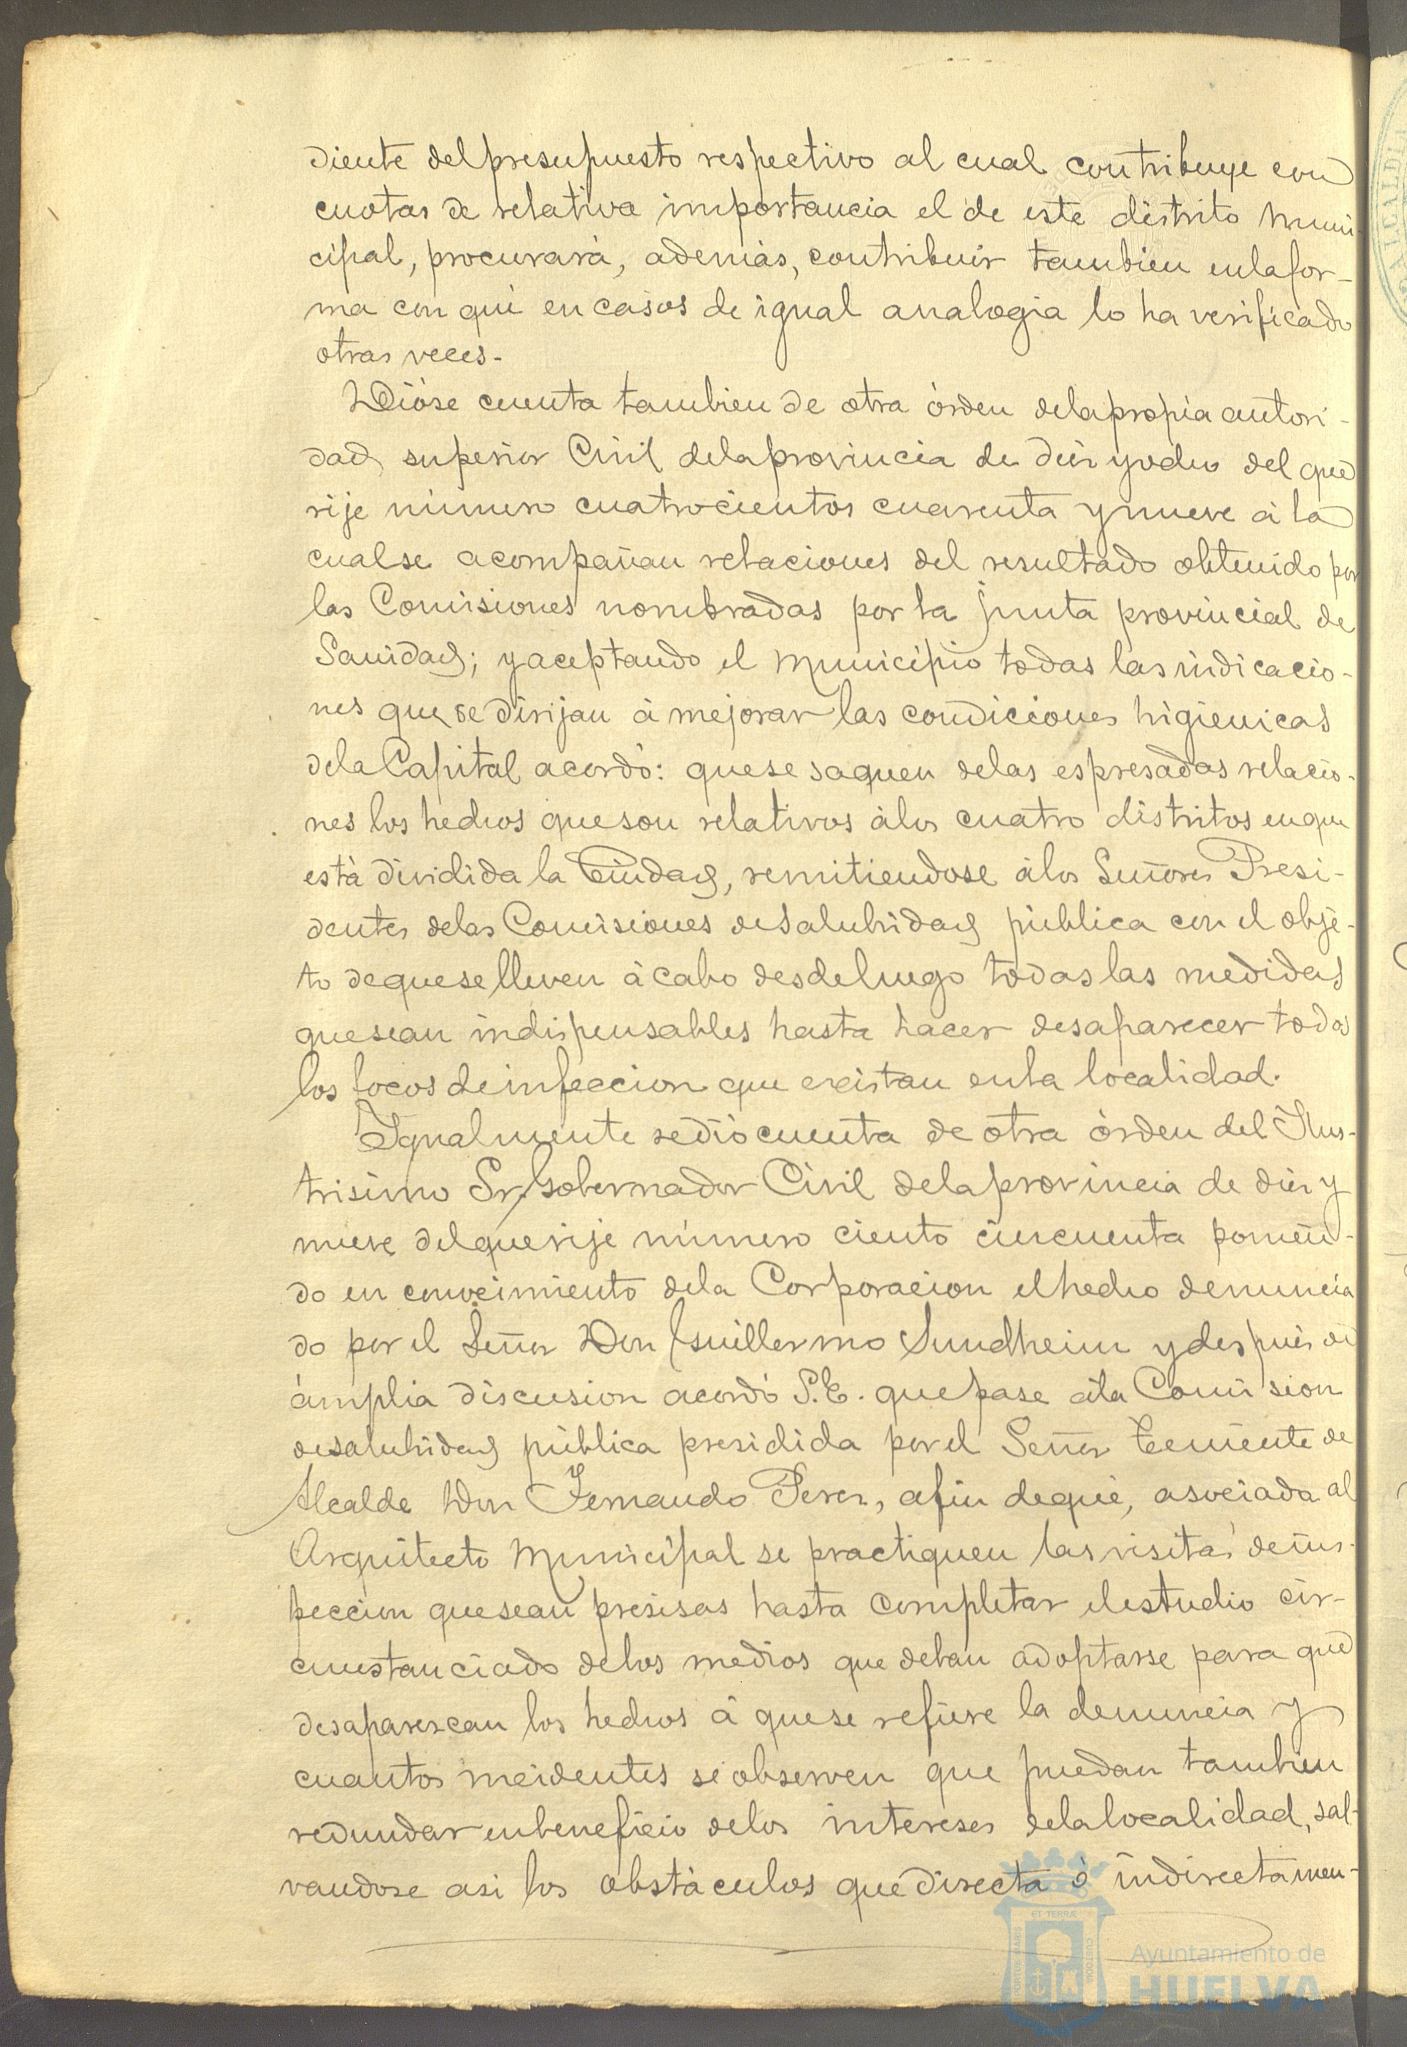 diente del presupuesto respectivo al cual contribuye con
cuotas de relativa importancia el de este distrito muni-
cipal, procurará, además, contribuir tambien en la for-
ma con que en casos de igual analogia lo ha verificado
otras veces.
Dióse cuenta tambien de otra órden de la propia autori-
dad superior Civil de la provincia de diez y ocho del que
rije número cuatrocientos cuarenta y nueve á la
cual se acompañan relaciones del resultado obtenido por
las Comisiones nombradas por la junta provincial de
Sanidad; y aceptando el Municipio todas las indicacio-
nes que se dirijan á mejorar las condiciones higienicas
de la Capital acordó: que se saquen de las espresadas relacio-
nes los hechos que son relativos á los cuatro distritos en que
está dividida la Ciudad, remitiendose á los Señores Presi-
dentes de las Comisiones de Salubridad pública con el obje-
to de que se lleven á cabo desde luego todas las medidas
que sean indispensables hasta hacer desaparecer todos
los focos de infeccion que existan en la localidad.
Igualmente se dió cuenta de otra órden del Ilus-
trisimo Sr. Gobernador Civil de la provincia de diez y
nueve del que rije número ciento cincuenta ponien-
do en conocimiento de la Corporacion el hecho denuncia
do por el Señor Don Guillermo Sundheim y despues de
ámplia discusion acordó S.E. que pase á la Comision
de salubridad pública presidida por el Señor Teniente de
Alcalde Don Fernando Perez, a fin de que, asociada al
Arquitecto Municipal se practiquen las visitas de ins-
peccion que sean presisas hasta completar el estudio cir-
cunstanciado de los medios que deban adoptarse para que
desaparezcan los hechos á que se refiere la denuncia y
cuantos incidentes se observen que puedan tambien
redundar en beneficio de los intereses de la localidad, sal-
vandose asi los obstáculos que directa ó indirectamen-
Ayuntamiento de
HUELVA